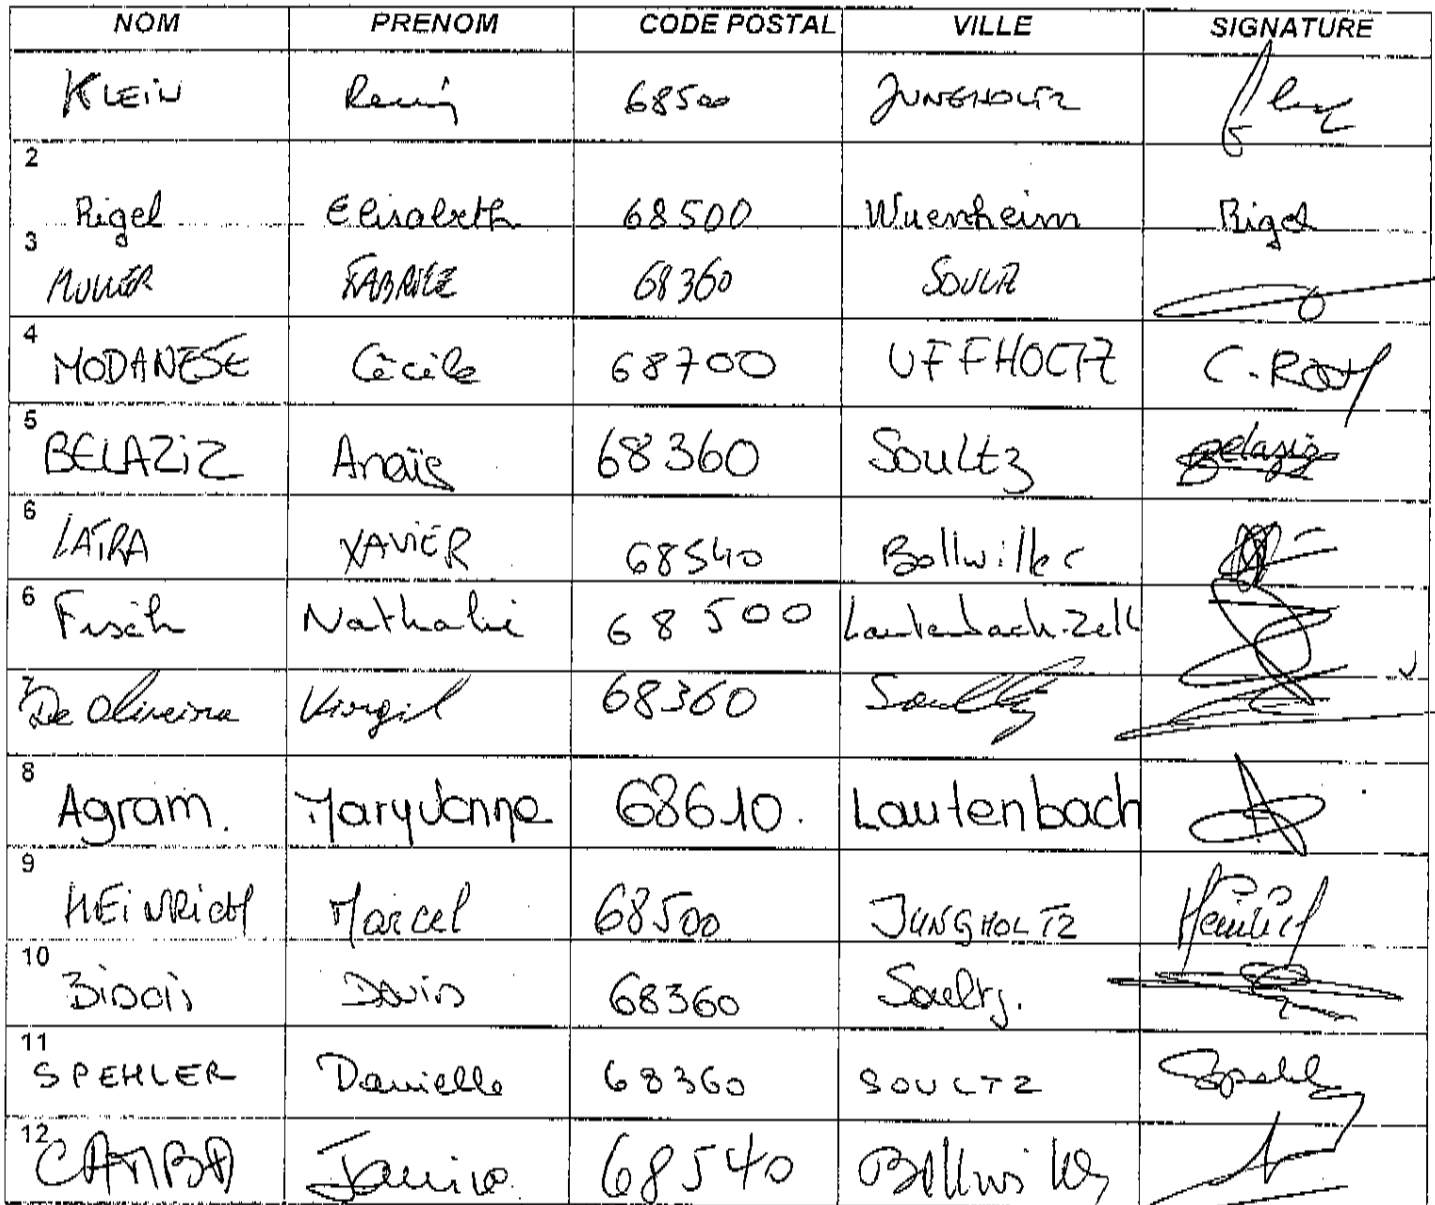 NOM PRENOM CODE POSTAL VILLE SIGNATURE
KLEIN Rémi 68500 JUNGHOLTZ
2
Rigel Elisabeth 68500 Wuenheim Rigel
3
MULLER FABRICE 68360 SOULTZ
4
MODANESE Cécile 68700 UFFHOLTZ C. Roth
5
BELAZIZ Anaïs 68360 Soultz Belaziz
6
LATRA XAVIER 68540 Bollwiller
6
Fisch Nathalie 68500 Lautenbach-Zell
7
De Oliveira Virgil 68360 Soultz
8
Agram. Maryvonne 68610. Lautenbach
9
HEINRICH Marcel 68500 JUNGHOLTZ Heinrich
10
David 68360 Soultz.
11
SPEHLER Danielle 68360 SOULTZ
12
68540 Bollwiller